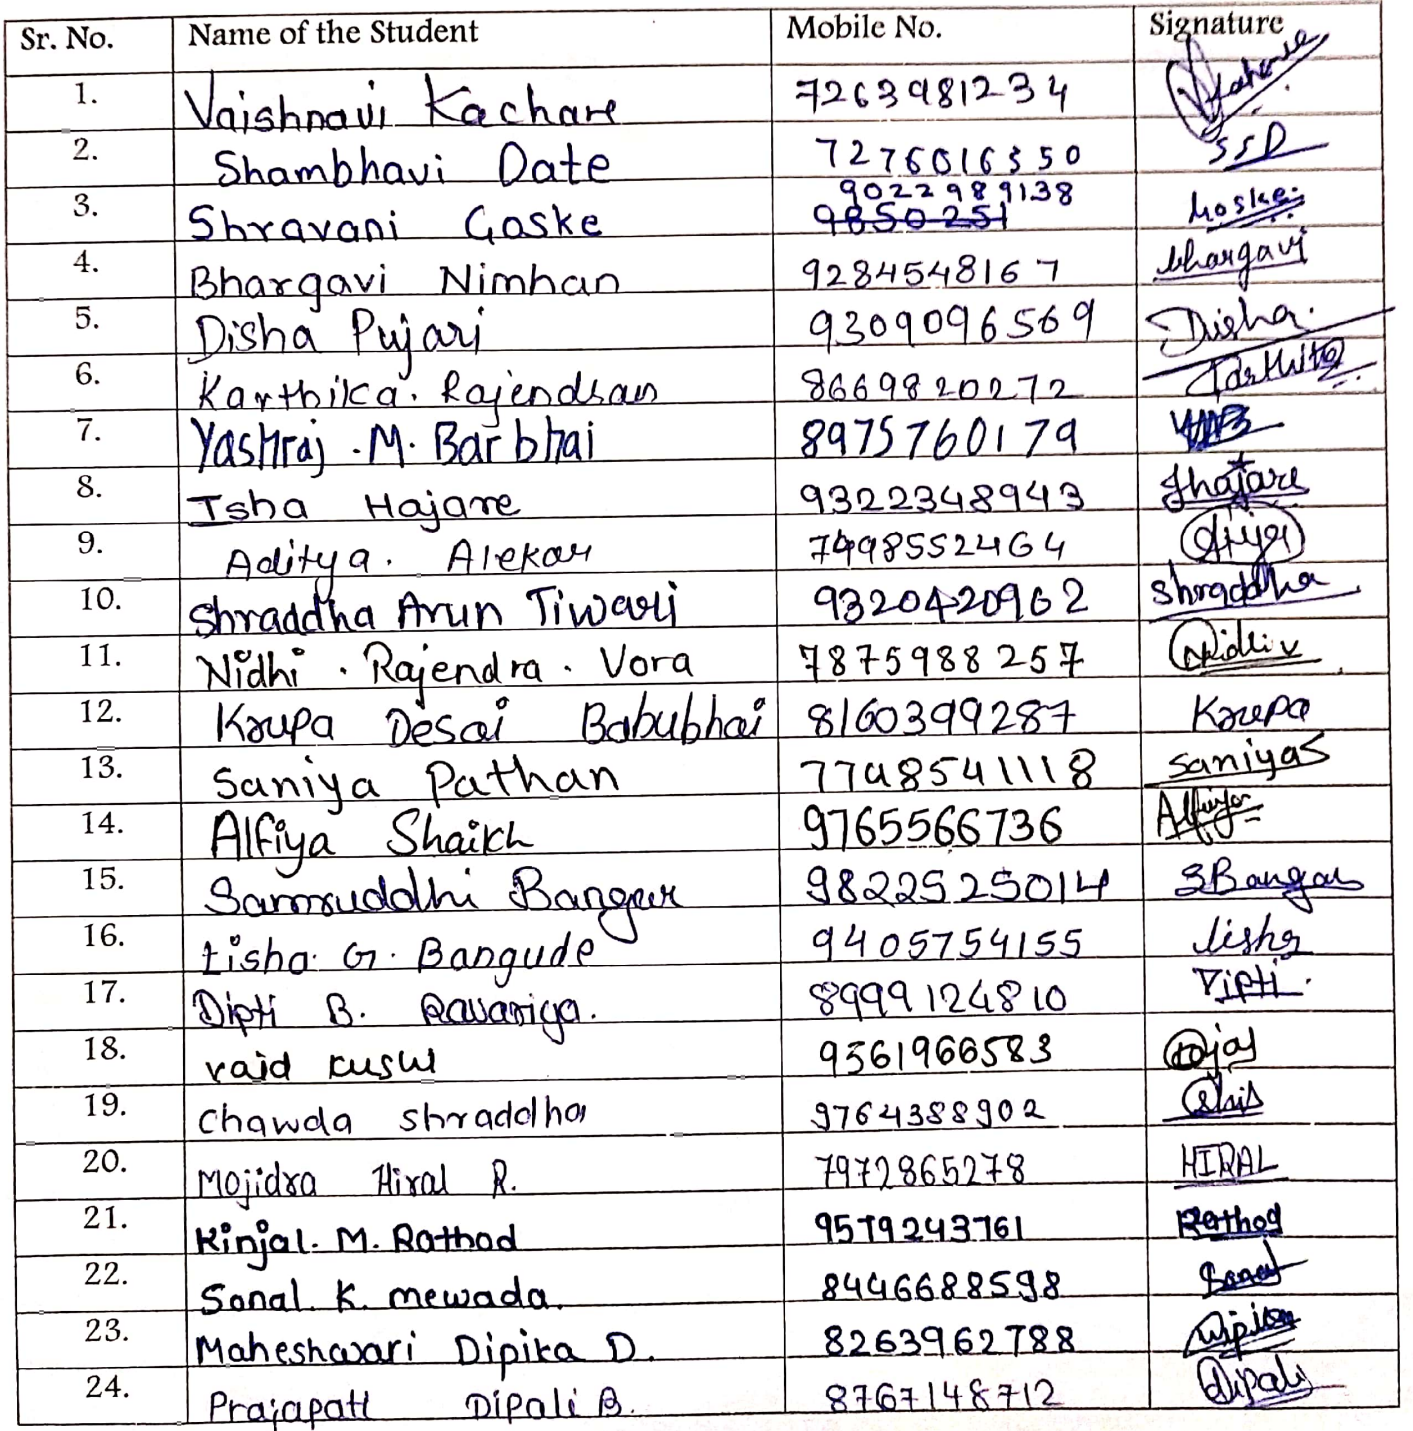 Sr. No. Name of the Student Mobile No. Signature
1. Vaishnavi Kachare 7263981234
2. Shambhavi Date 7276016350 SSD
9022989138
3. Shravani Goske 9850251 Goske
4. Bhargavi Nimhan 9284548167 bhargavi
5. Disha Pujari 9309096569 Disha.
6. Karthika. Rajendran 8669820272
7. Yashraj .M. Barbhai 8975760179
8. Isha Hajare 9322348943 Ihajare
9. Aditya. Alekar 7498552464
10. Shraddha Arun Tiwari 9320420962 Shraddha
11. Nidhi . Rajendra . Vora 7875988257
12. Krupa Desai Babubhai 8160399287 Krupa
13. Saniya Pathan 7748541118 SaniyaS
14. Alfiya Shaikh 9765566736 Alfiya
15. Bangur 9822525014
16. Lisha. G. Bangude 9405754155 lisha
17. Dipti B. 8999124810 Dipti.
18. 9561966583
19. Chawda Shraddha 9764388902
20. Mojidra Hiral R. 7972865278 HIRAL
21. Kinjal. M. Rathod 9579243761 Rathod
22. Sonal K. mewada. 8446688598 Sonal
23. Maheshwari Dipika D. 8263962788 Dipika
24. Prajapati Dipali B. 8767148712 Dipali